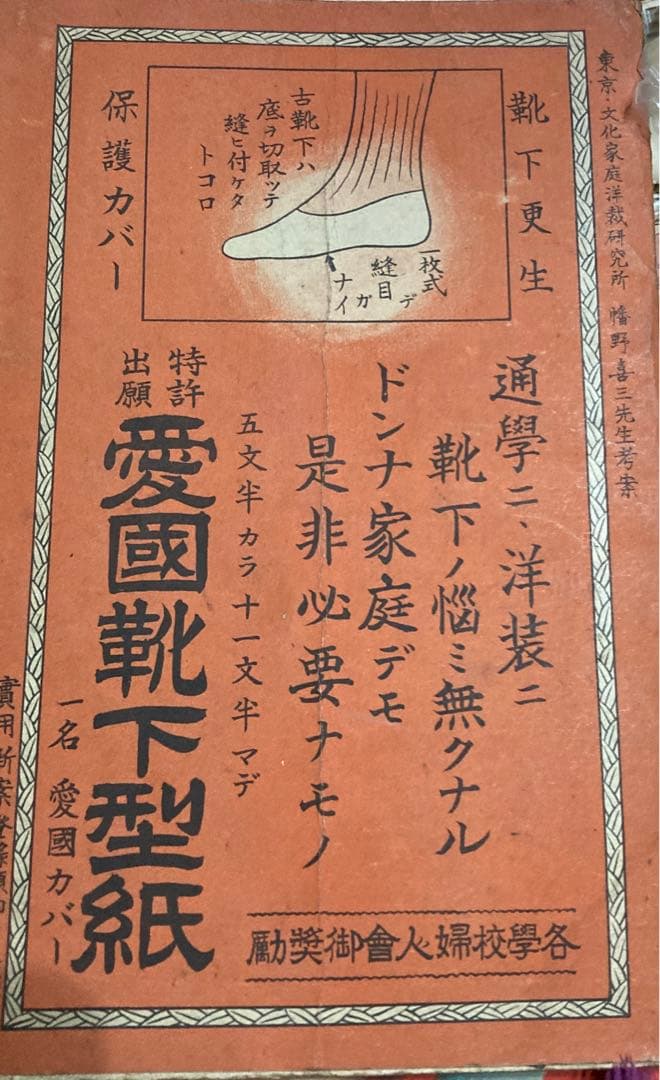 東京・文化家庭洋裁研究所 幡野喜三先生考案
靴下更生
保護カバー
古靴下ハ
底ヲ切取ッテ
縫ヒ付ケタ
トコロ
一枚式
デ
縫目
ガ
ナイ
通學ニ、洋装ニ
靴下ノ悩ミ無クナル
ドンナ家庭デモ
是非必要ナモノ
五文半カラ十一文半マデ
特許
出願
愛國靴下型紙
一名 愛國カバー
各學校婦人會御獎勵
實用新案登錄願